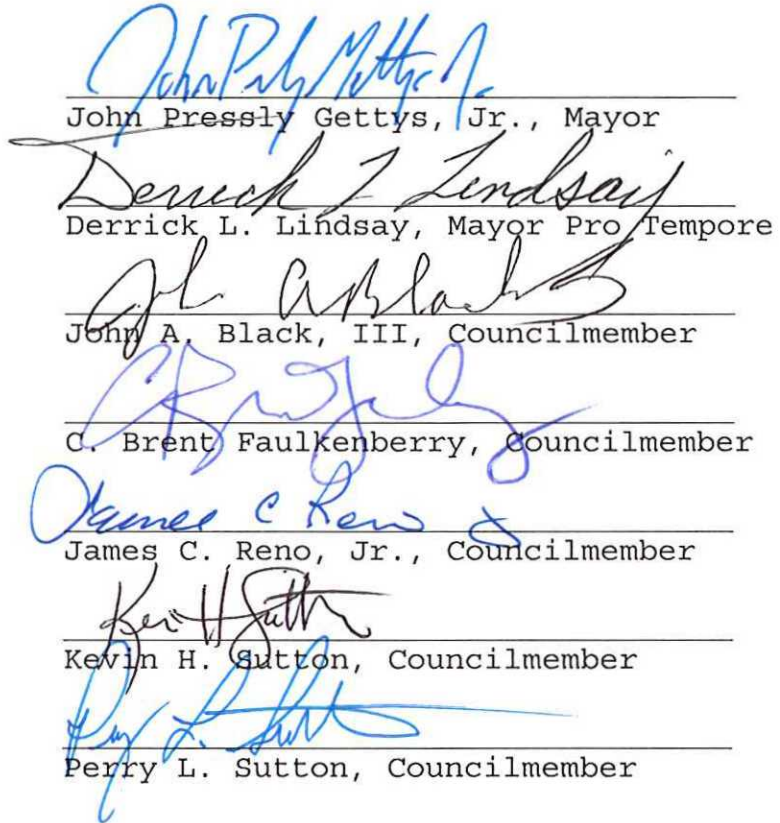 John Pressly Gettys, Jr., Mayor
Derrick L Lindsay
Derrick L. Lindsay, Mayor Pro Tempore
John A Black
John A. Black, III, Councilmember
C. Brent Faulkenberry, Councilmember
James C Reno Jr
James C. Reno, Jr., Councilmember
Kevin H Sutton
Kevin H. Sutton, Councilmember
Perry L. Sutton
Perry L. Sutton, Councilmember